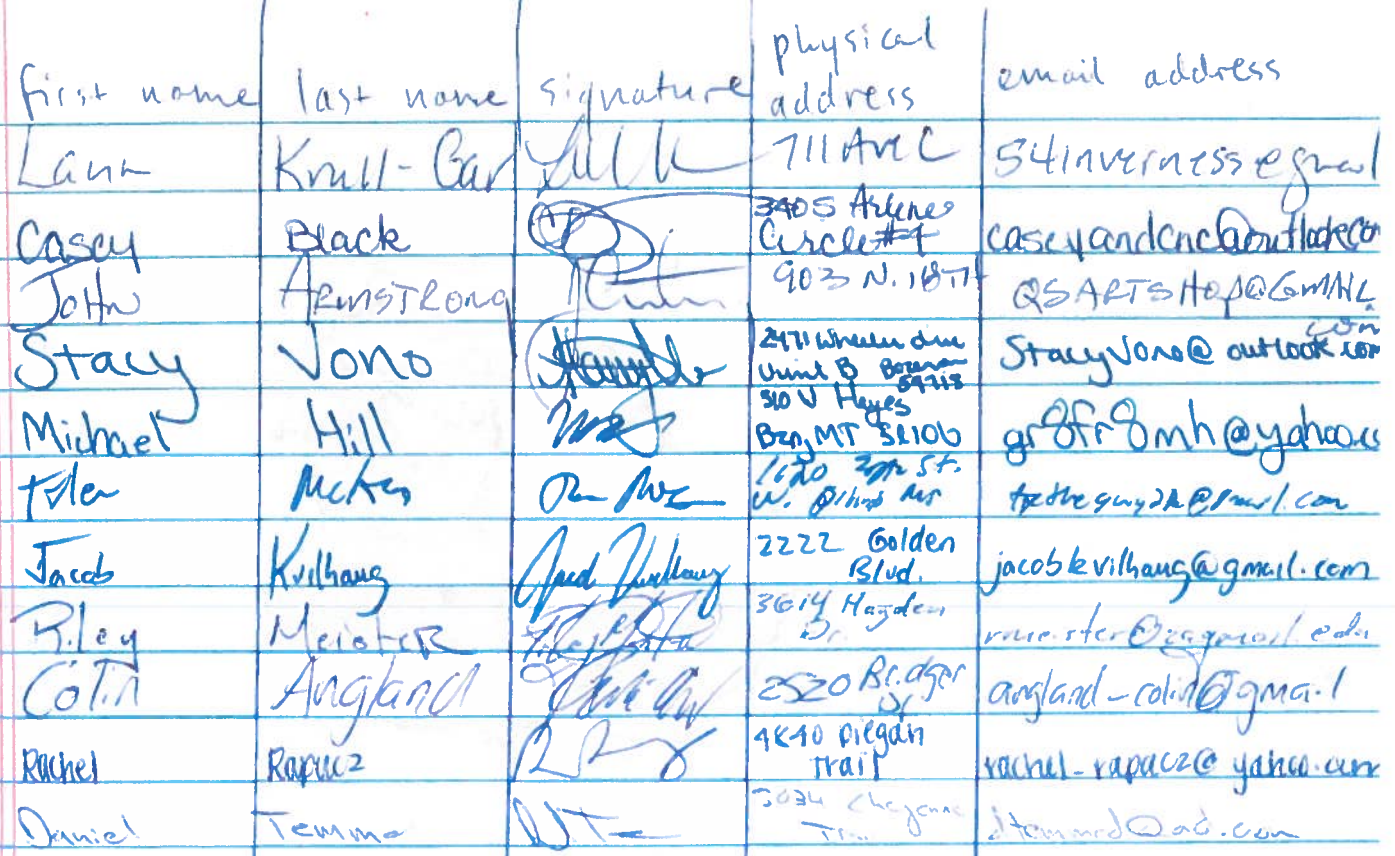 first name last name signature physical address email address
Lann Krull-Gar 711 Ave C 54inverness@gmail
Casey Black 3405 Arlene Circle #1 caseyandcnc@outlook.co
John Armstrong 903 N. 18TH QSARTSHOP@GMAIL.com
Stacy Vono 2471 Wheeler Unit B 59718 StacyVono@outlook.com
Michael Hill 510 Hayes Bzn, MT gr8fr8mh@yahoo.c
Tyler 1620 St. W.
Jacob Kvilhaug 2222 Golden Blvd. jacobkvilhaug@gmail.com
Riley Meister 3614 Hayden Dr.
Colin Angland 2520 Bridger Dr angland_colin@gmail
Rachel Rapacz 4840 piegan Trail rachel_rapacz@yahoo.com
Daniel 3034 Cheyenne